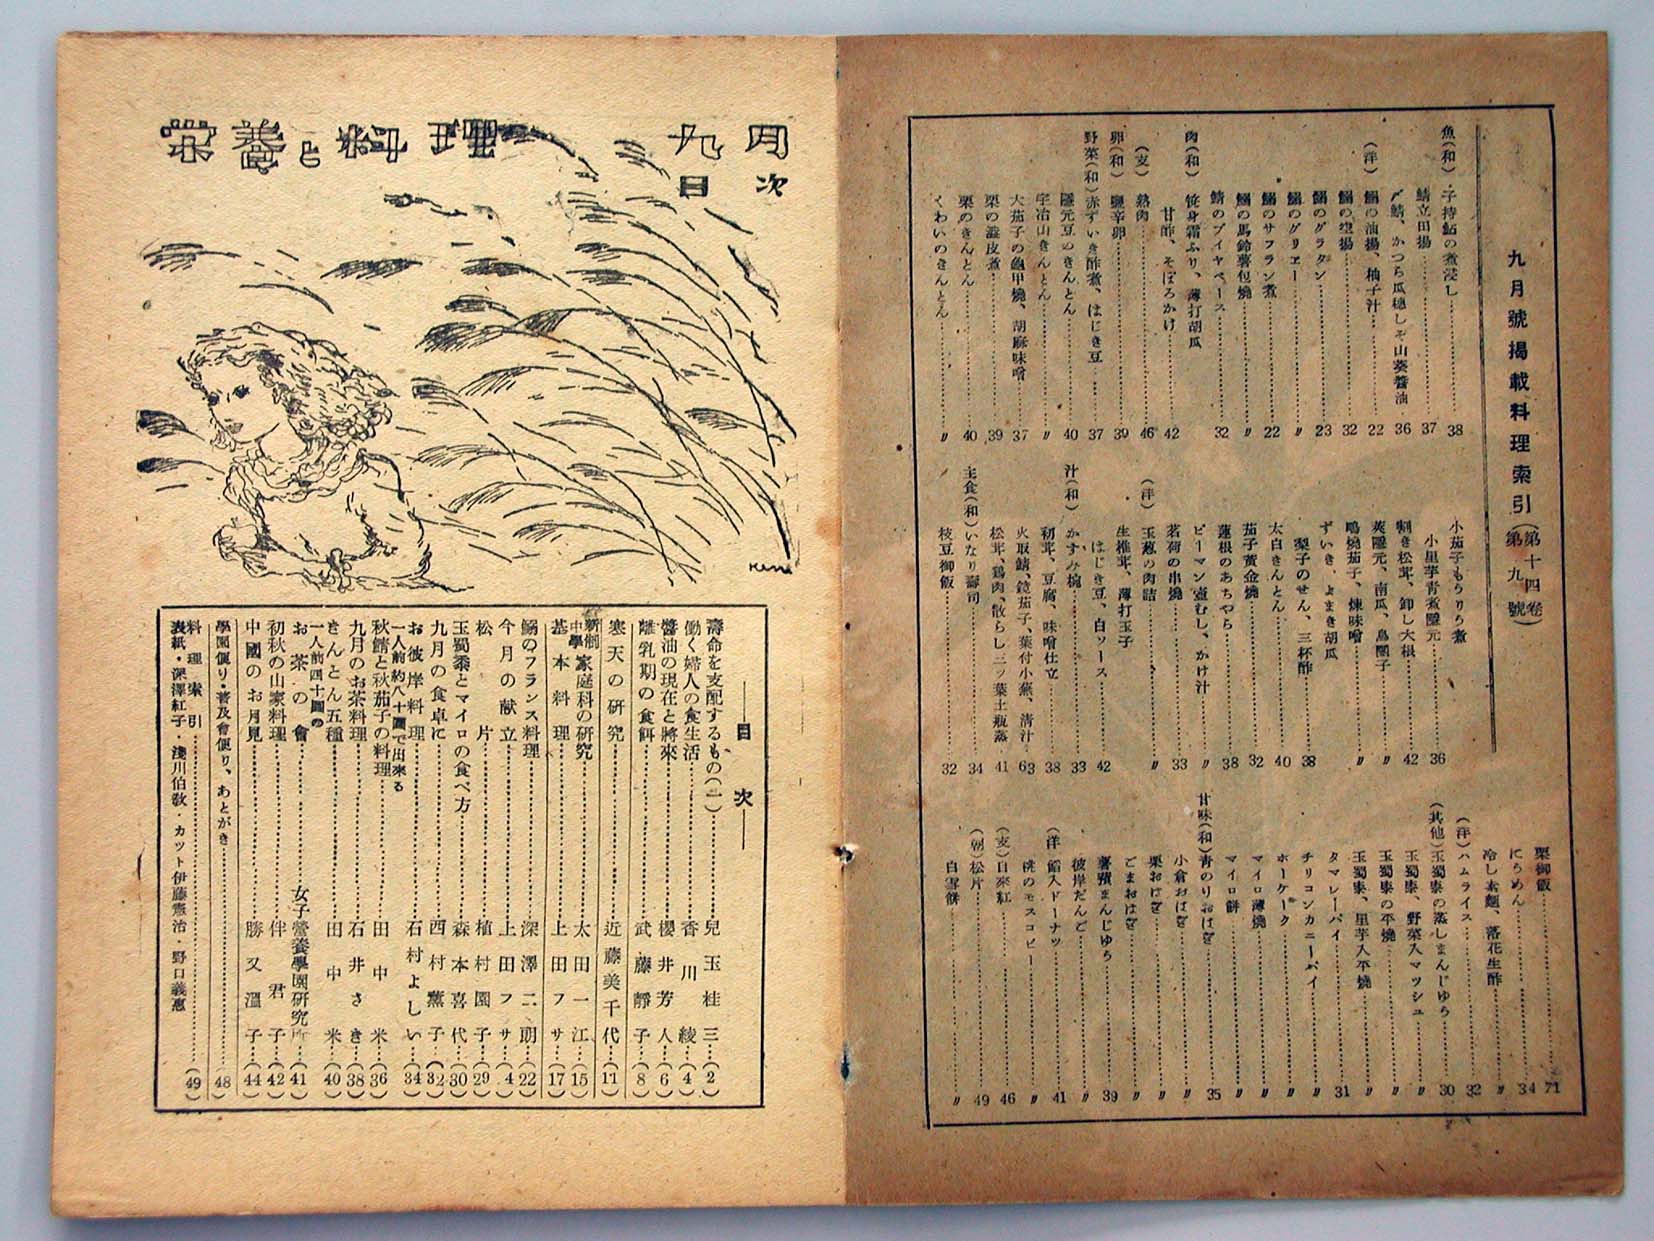 九月號揭載料理索引(第十四卷 第九號)
魚(和)子持鮎の煮浸し 38
鯖立田揚 37
〆鯖、かつら瓜穗しそ山葵醬油 36
(洋)鰯の油揚、柚子汁 22
鰯の空揚 32
鰯のグラタン 23
鰯のグリエー 〃
鰯のサフラン煮 22
鰯の馬鈴薯包燒 〃
鯖のブイヤベース 32
肉(和)笹身霜ふり、薄打胡瓜
甘酢、そぼろかけ 42
(支)熟肉 46
卵(和)鹽辛卵 39
野菜(和)赤ずいき酢煮、はじき豆 37
隱元豆のきんとん 40
宇冶山きんとん 〃
大茄子の龜甲燒、胡麻味噌 37
栗の澁皮煮 39
栗のきんとん 40
くわいのきんとん 〃
小茄子もろりろ煮
小里芋青煮隱元 36
割き松茸、卸し大根 42
蒸隱元、南瓜、鳥團子 〃
鴫燒茄子、煉味噌 〃
ずいき、よまき胡瓜
梨子のせん、三杯酢 38
太白きんとん 40
茄子黃金燒 32
蓮根のあちやら 38
ピーマン壺むし、かけ汁 〃
茗荷の串燒 33
(洋)玉葱の肉詰 〃
生椎茸、薄打玉子
はじき豆、白ソース 42
汁(和)かすみ椀 33
初茸、豆腐、味噌仕立 38
火取鯖、鏡茄子、葉付小蕪、清汁 63
松茸、鷄肉、散らし三ッ葉土瓶蒸 41
主食(和)いなり壽司 34
枝豆御飯 32
栗御飯 71
にうめん 34
冷し素麵、落花生酢 〃
(洋)ハムライス 32
(其他)玉蜀黍の蒸しまんじゆう 30
玉蜀黍、野菜入マツシュ 〃
玉蜀黍の平燒 〃
玉蜀黍、里芋入平燒 〃
タマレーパイ 31
チリコンカニーパイ 〃
ホーケーク 〃
マイロ薄燒 〃
マイロ餅 〃
甘味(和)青のりおはぎ 35
小倉おはぎ 〃
栗おはぎ 〃
ごまおはぎ 〃
薯蕷まんじゆう 39
彼岸だんご 〃
(洋)餡入ドーナツ 41
桃のモスコビー 〃
(支)自來紅 46
(朝)松片 49
白雪餅 〃
栄養と料理 九月
目次
——目次——
壽命を支配するもの(二) 兒玉桂三(2)
働く婦人の食生活 香川綾(4)
醬油の現在と將來 櫻井芳人(6)
離乳期の食餌 武藤靜子(8)
寒天の研究 近藤美千代(11)
新制中學家庭科の研究 太田一江(15)
基本料理 上田フサ(17)
鰯のフランス料理 深澤二朗(22)
今月の献立 上田フサ(4)
松片 植村園子(29)
玉蜀黍とマイロの食べ方 森本喜代(30)
九月の食卓に 西村薰子(32)
お彼岸料理 石村よしい(34)
一人前約八十圓で出來る
秋鯖と秋茄子の料理 田中米(36)
九月のお茶料理 石井さき(38)
きんとん五種 田中米(40)
一人前四十圓の
お茶の會 女子營養學園研究所(41)
初秋の山家料理 伴君子(42)
中國のお月見 勝又溫子(44)
學園便り・普及會便り、あとがき (48)
料理索引 (49)
表紙・深澤紅子・淺川伯敎・カツト伊藤憲治・野口義惠